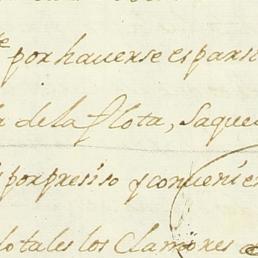 por haverse esparsi
de la flota, saque
por presiso y conveni
totales los Clamores